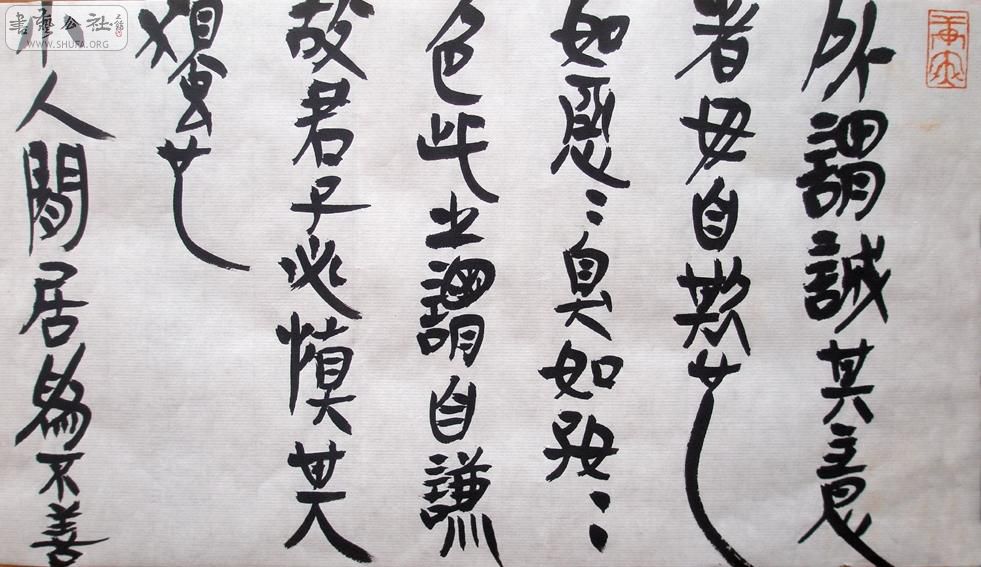 所謂誠其意
者毋自欺也
如惡:臭如好:
色此之謂自謙
故君子必慎其
獨也
小人閒居為不善
書藝公社
WWW.SHUFA.ORG